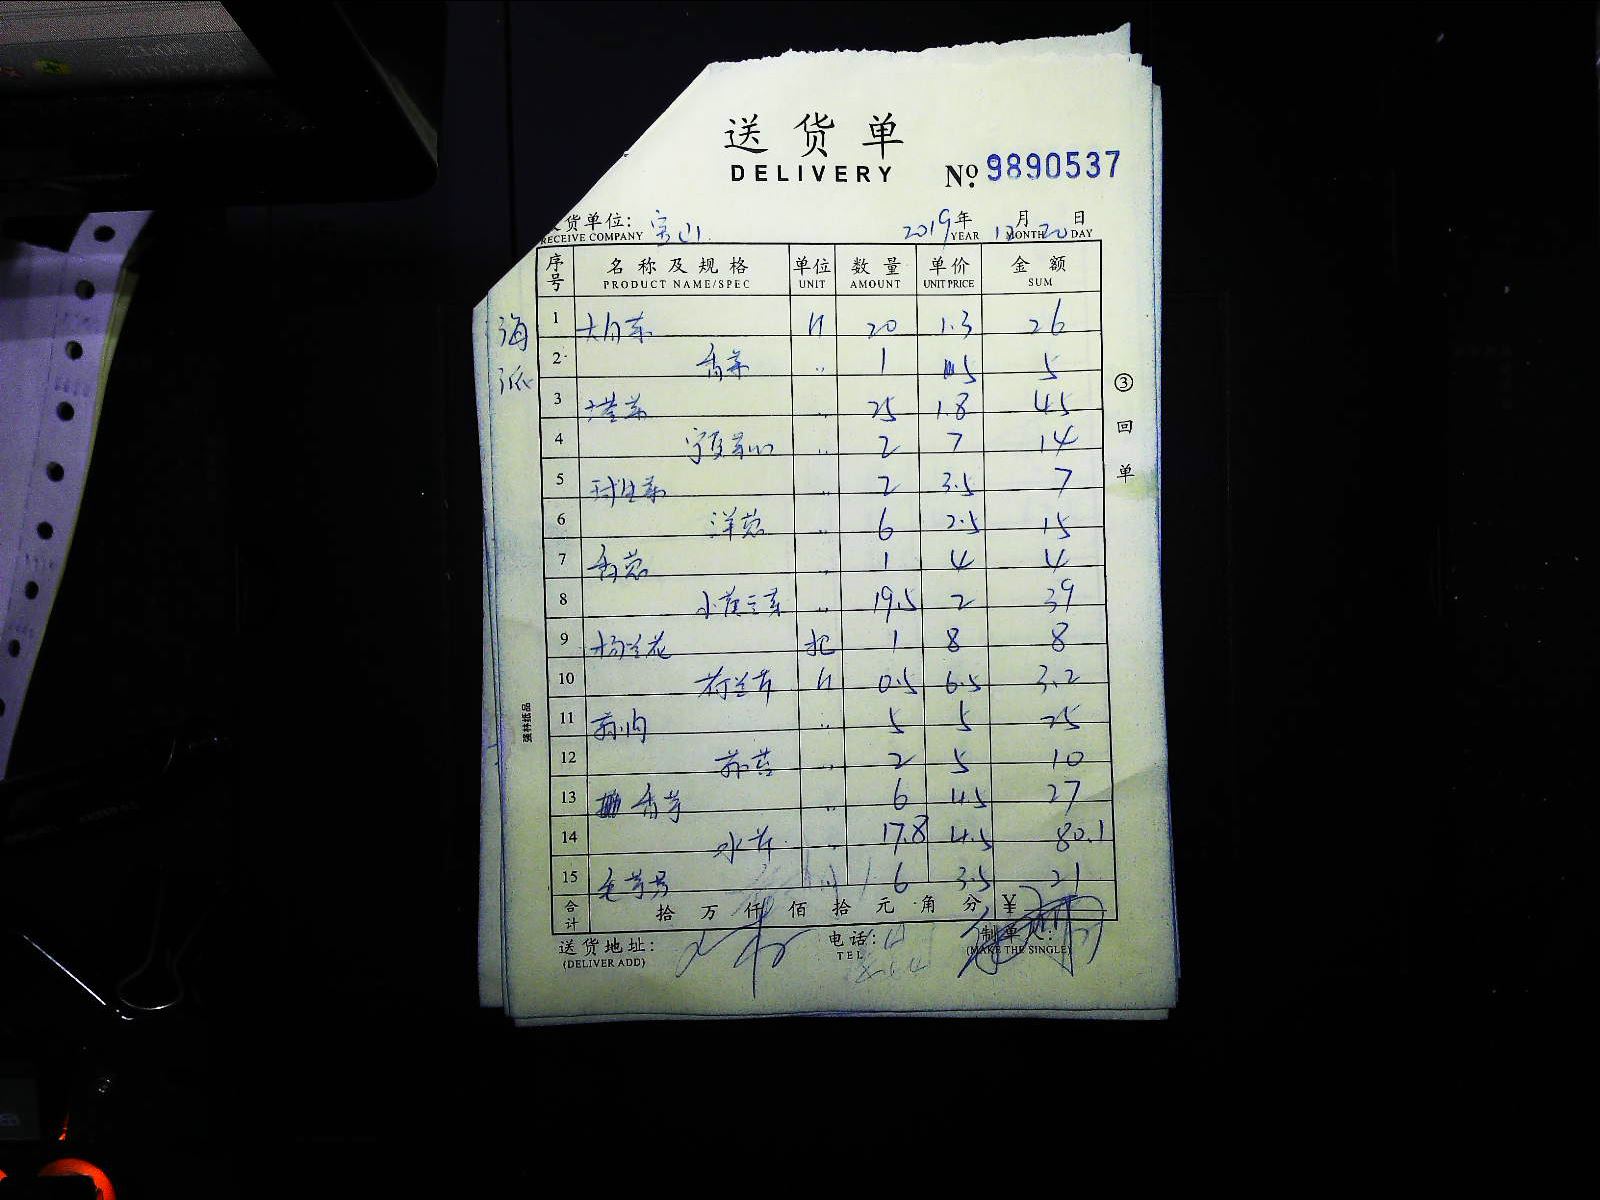 送货单
DELIVERY
Nº. 9890537
货单位: 宝山
RECEIVE COMPANY
2019年 12月 20日
YEAR MONTH DAY
序号 名称及规格 单位 数量 单价 金额
PRODUCT NAME/SPEC UNIT AMOUNT UNIT PRICE SUM
海派
1 大白菜 斤 20 1.3 26
2 香菜 〃 1 5 5
3 塔菜 〃 25 1.8 45
4 宁夏菜心 〃 2 7 14
5 球生菜 〃 2 3.5 7
6 洋葱 〃 6 2.5 15
7 香葱 〃 1 4 4
8 〃 19.5 2 39
9 杨兰花 把 1 8 8
10 荷兰芹 斤 0.5 6.5 3.2
11 〃 5 5 25
12 〃 2 5 10
13 香芋 〃 6 4.5 27
14 水芹 〃 17.8 4.5 80.1
15 6 3.5 21
合计 拾 万 仟 佰 拾 元 角 分 ¥
送货地址:
(DELIVER ADD)
电话:
TEL
制单人:
(MAKE THE SINGLE)
③回单
强林纸品